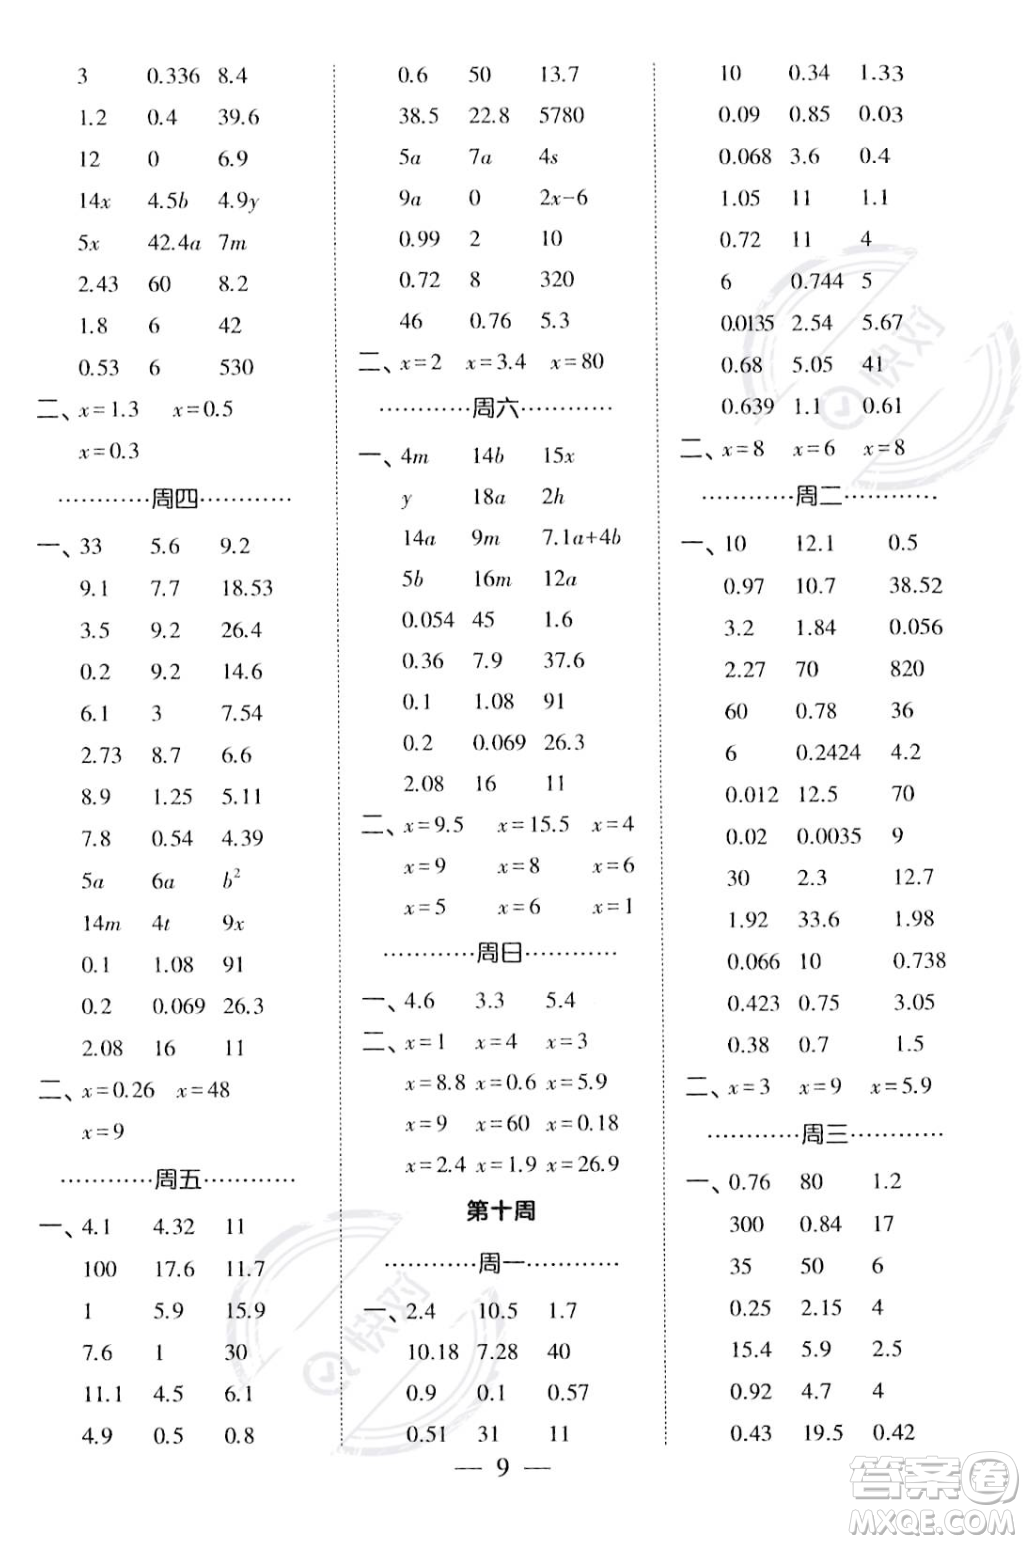 3 0.336 8.4
1.2 0.4 39.6
12 0 6.9
14x 4.5b 4.9y
5x 42.4a 7m
2.43 60 8.2
1.8 6 42
0.53 6 530
二、x=1.3 x=0.5
x=0.3
…………周四…………
一、33 5.6 9.2
9.1 7.7 18.53
3.5 9.2 26.4
0.2 9.2 14.6
6.1 3 7.54
2.73 8.7 6.6
8.9 1.25 5.11
7.8 0.54 4.39
5a 6a b²
14m 4t 9x
0.1 1.08 91
0.2 0.069 26.3
2.08 16 11
二、x=0.26 x=48
x=9
…………周五…………
一、4.1 4.32 11
100 17.6 11.7
1 5.9 15.9
7.6 1 30
11.1 4.5 6.1
4.9 0.5 0.8
0.6 50 13.7
38.5 22.8 5780
5a 7a 4s
9a 0 2x-6
0.99 2 10
0.72 8 320
46 0.76 5.3
二、x=2 x=3.4 x=80
…………周六…………
一、4m 14b 15x
y 18a 2h
14a 9m 7.1a+4b
5b 16m 12a
0.054 45 1.6
0.36 7.9 37.6
0.1 1.08 91
0.2 0.069 26.3
2.08 16 11
二、x=9.5 x=15.5 x=4
x=9 x=8 x=6
x=5 x=6 x=1
…………周日…………
一、4.6 3.3 5.4
二、x=1 x=4 x=3
x=8.8 x=0.6 x=5.9
x=9 x=60 x=0.18
x=2.4 x=1.9 x=26.9
第十周
…………周一…………
一、2.4 10.5 1.7
10.18 7.28 40
0.9 0.1 0.57
0.51 31 11
10 0.34 1.33
0.09 0.85 0.03
0.068 3.6 0.4
1.05 11 1.1
0.72 11 4
6 0.744 5
0.0135 2.54 5.67
0.68 5.05 41
0.639 1.1 0.61
二、x=8 x=6 x=8
…………周二…………
一、10 12.1 0.5
0.97 10.7 38.52
3.2 1.84 0.056
2.27 70 820
60 0.78 36
6 0.2424 4.2
0.012 12.5 70
0.02 0.0035 9
30 2.3 12.7
1.92 33.6 1.98
0.066 10 0.738
0.423 0.75 3.05
0.38 0.7 1.5
二、x=3 x=9 x=5.9
…………周三…………
一、0.76 80 1.2
300 0.84 17
35 50 6
0.25 2.15 4
15.4 5.9 2.5
0.92 4.7 4
0.43 19.5 0.42
— 9 —
快对
快对
答案圈
MXQE.COM